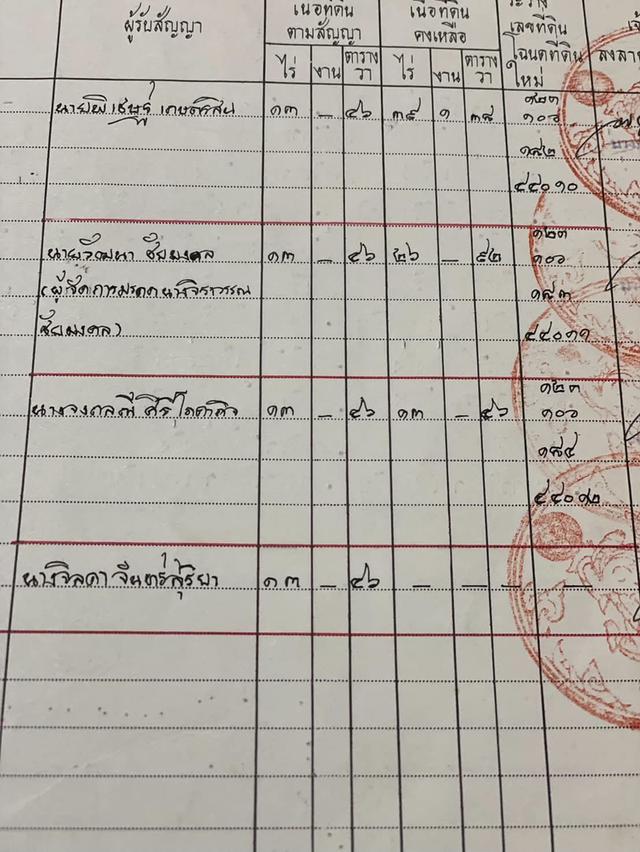 ผู้รับสัญญา
เนื้อที่ดิน
ตามสัญญา
ไร่ งาน ตาราง
วา
เนื้อที่ดิน
คงเหลือ
ไร่ งาน ตาราง
วา
ระวาง
เลขที่ดิน
โฉนดที่ดิน
ใหม่
นายพิเชษฐ์ ๑๓ – ๔๖ ๓๙ ๑ ๓๘
๑๒๓
๑๐๖
๑๙๒
๔๔๐๑๐
นายวัฒนา ชัยมงคล ๑๓ – ๔๖ ๒๖ – ๙๒
(ผู้จัดการมรดกนางจิรวรรณ
ชัยมงคล)
๑๒๓
๑๐๖
๑๙๓
๔๔๐๑๑
ศิริ ๑๓ – ๔๖ ๑๓ – ๔๖
๑๒๓
๑๐๖
๑๙๔
๔๔๐๑๒
นางจิลดา จันทร์สุริยา ๑๓ – ๔๖ – – – –